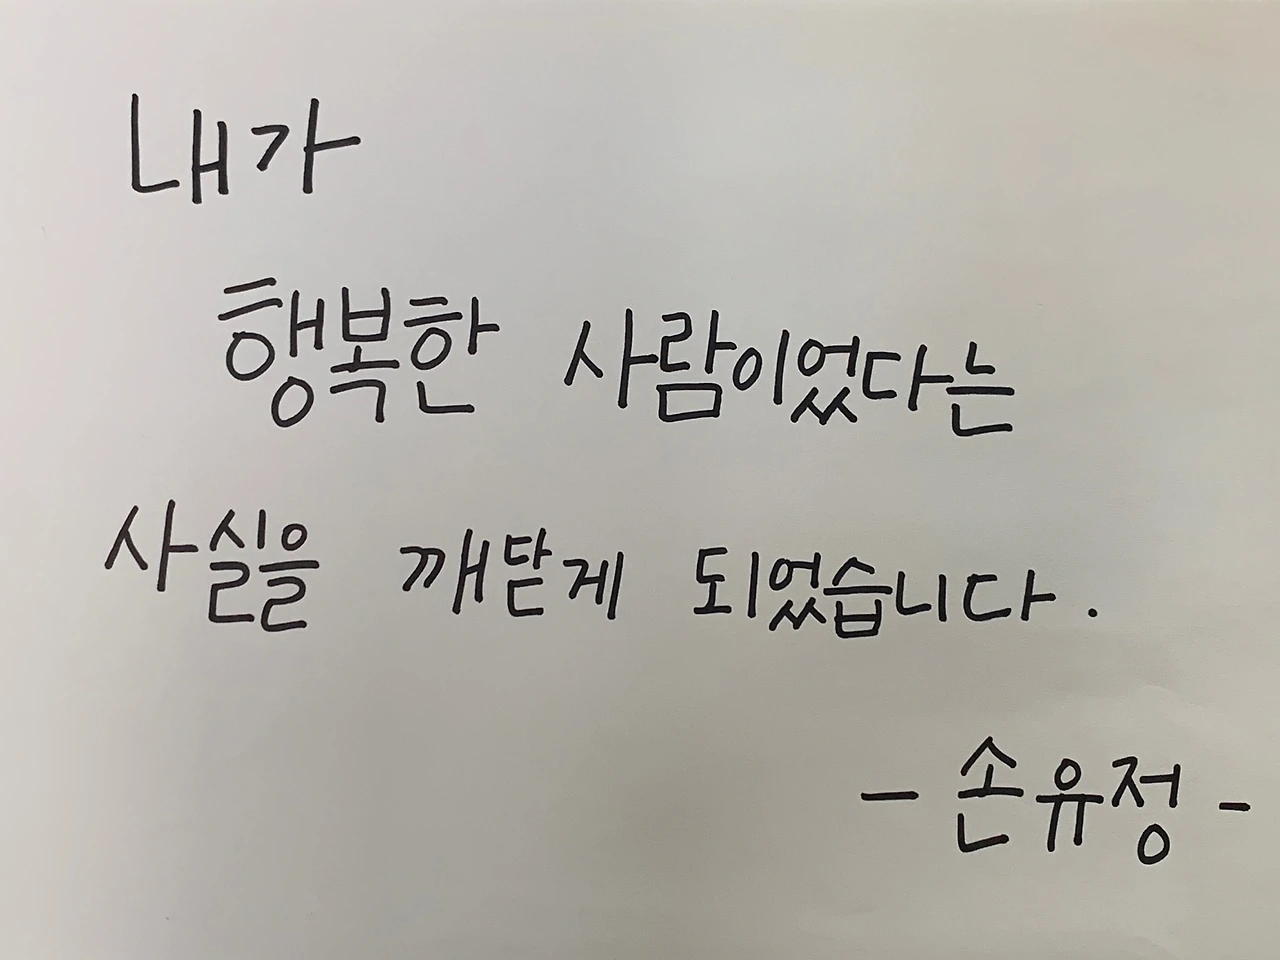 내가
행복한 사람이었다는
사실을 깨닫게 되었습니다.
- 손유정 -